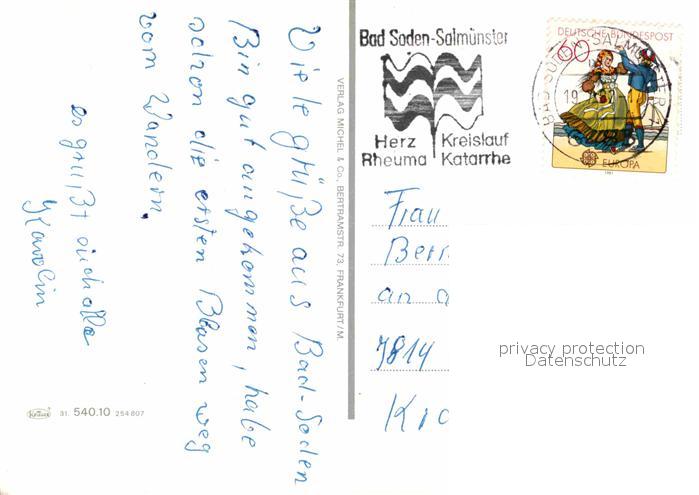 Viele grüße aus Bad-Soden
Bin gut angekommen, habe
schon die ersten Blasen weg
vom Wandern.
es grüßt euch alle
Karolin
31. 540.10 254807
VERLAG MICHEL & Co., BERTRAMSTR. 73, FRANKFURT/M.
Bad Soden-Salmünster
Herz Kreislauf
Rheuma Katarrhe
DEUTSCHE BUNDESPOST
60
EUROPA
1981
BAD SODEN-SALMÜNSTER
19
Frau
an
7814
privacy protection
Datenschutz